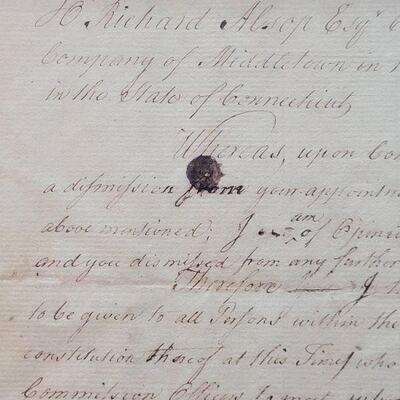 To Richard Alsop Esqr
Company of Middletown in
in the State of Connecticut
Whereas, upon
a dismission from your appointm
above mentioned; I am of Opini
and you dismissed from any further
Therefore I
to be given to all Persons within the
constitution thereof at this Time, who
Commission Officers to meet